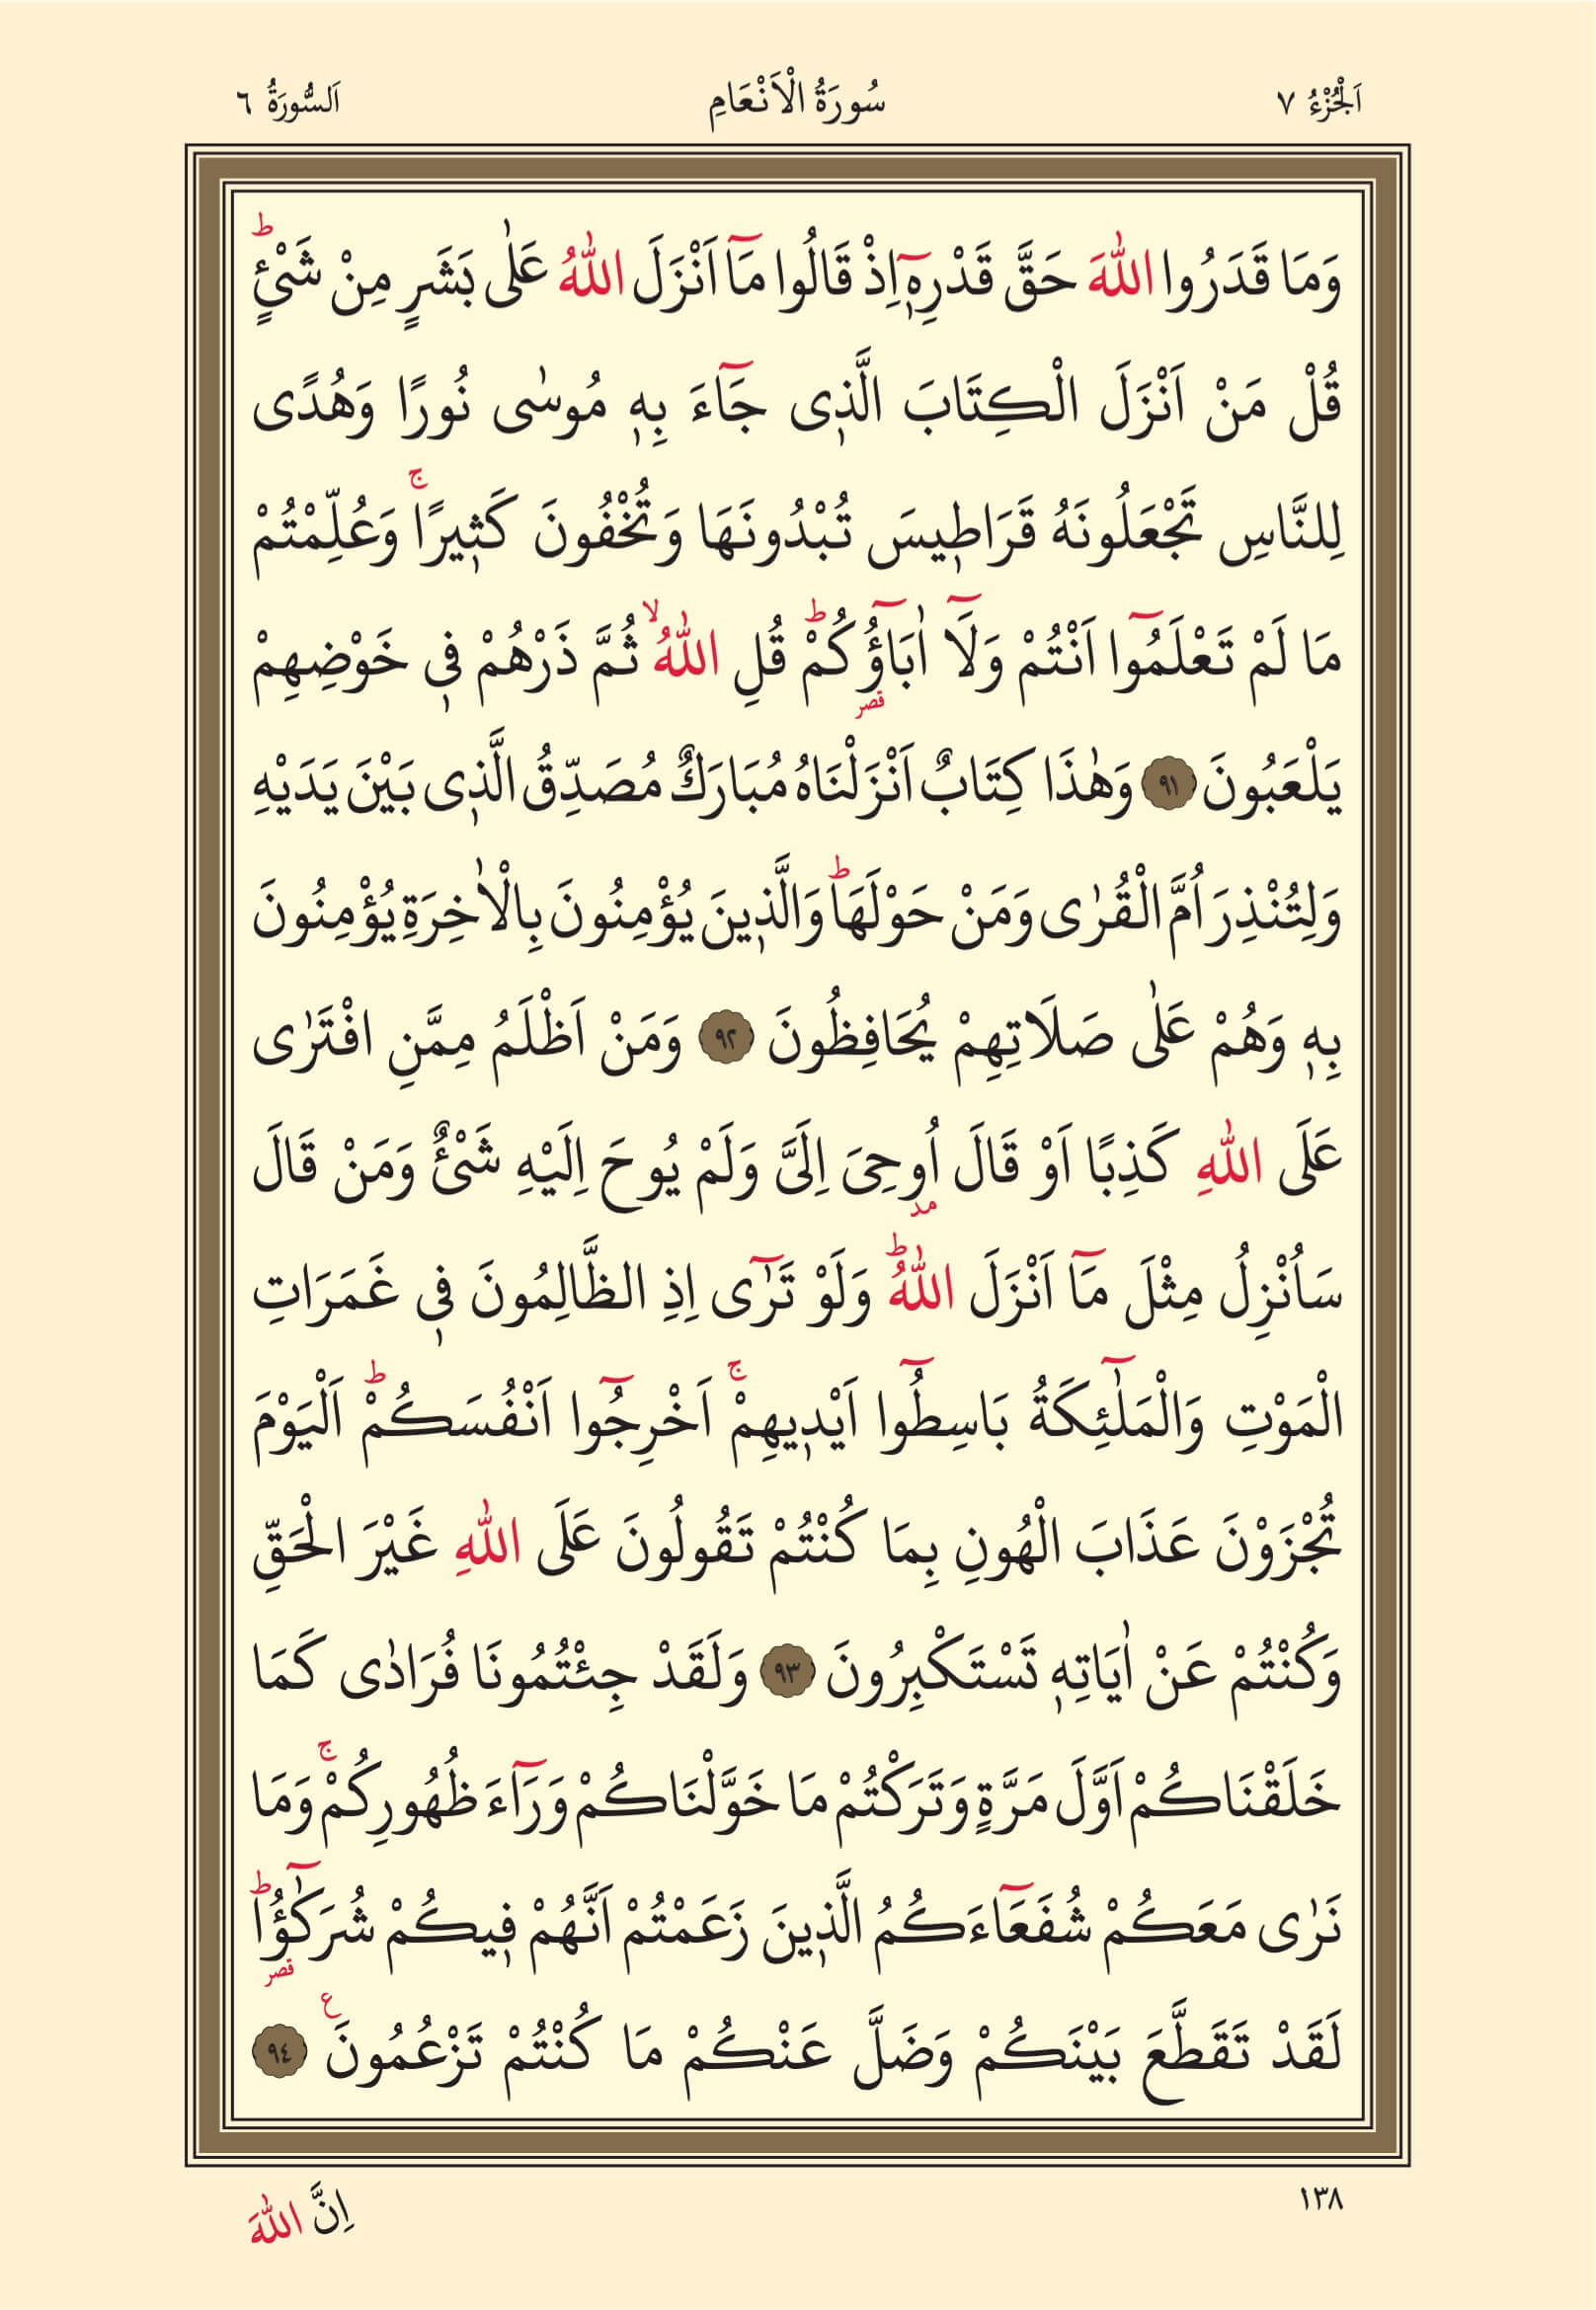 اَلْجُزْءُ ٧ سُورَةُ الْاَنْعَامِ اَلسُّورَةُ ٦
وَمَا قَدَرُوا اللّٰهَ حَقَّ قَدْرِه۪ٓ اِذْ قَالُوا مَٓا اَنْزَلَ اللّٰهُ عَلٰى بَشَرٍ مِنْ شَيْءٍۜ
قُلْ مَنْ اَنْزَلَ الْكِتَابَ الَّذ۪ى جَٓاءَ بِه۪ مُوسٰى نُورًا وَهُدًى
لِلنَّاسِ تَجْعَلُونَهُ قَرَاط۪يسَ تُبْدُونَهَا وَتُخْفُونَ كَث۪يرًاۚ وَعُلِّمْتُمْ
مَا لَمْ تَعْلَمُٓوا اَنْتُمْ وَلَٓا اٰبَٓاؤُ۬كُمْۜ قُلِ اللّٰهُۙ ثُمَّ ذَرْهُمْ ف۪ى خَوْضِهِمْ
قصر
يَلْعَبُونَ ﴿٩١﴾ وَهٰذَا كِتَابٌ اَنْزَلْنَاهُ مُبَارَكٌ مُصَدِّقُ الَّذ۪ى بَيْنَ يَدَيْهِ
وَلِتُنْذِرَ اُمَّ الْقُرٰى وَمَنْ حَوْلَهَاۜ وَالَّذ۪ينَ يُؤْمِنُونَ بِالْاٰخِرَةِ يُؤْمِنُونَ
بِه۪ وَهُمْ عَلٰى صَلَاتِهِمْ يُحَافِظُونَ ﴿٩٢﴾ وَمَنْ اَظْلَمُ مِمَّنِ افْتَرٰى
عَلَى اللّٰهِ كَذِبًا اَوْ قَالَ اُوحِىَ اِلَىَّ وَلَمْ يُوحَ اِلَيْهِ شَيْءٌ وَمَنْ قَالَ
مد
سَاُنْزِلُ مِثْلَ مَٓا اَنْزَلَ اللّٰهُۜ وَلَوْ تَرٰٓى اِذِ الظَّالِمُونَ ف۪ى غَمَرَاتِ
الْمَوْتِ وَالْمَلٰٓئِكَةُ بَاسِطُٓوا اَيْد۪يهِمْۚ اَخْرِجُٓوا اَنْفُسَكُمْۜ اَلْيَوْمَ
تُجْزَوْنَ عَذَابَ الْهُونِ بِمَا كُنْتُمْ تَقُولُونَ عَلَى اللّٰهِ غَيْرَ الْحَقِّ
وَكُنْتُمْ عَنْ اٰيَاتِه۪ تَسْتَكْبِرُونَ ﴿٩٣﴾ وَلَقَدْ جِئْتُمُونَا فُرَادٰى كَمَا
خَلَقْنَاكُمْ اَوَّلَ مَرَّةٍ وَتَرَكْتُمْ مَا خَوَّلْنَاكُمْ وَرَٓاءَ ظُهُورِكُمْۚ وَمَا
نَرٰى مَعَكُمْ شُفَعَٓاءَكُمُ الَّذ۪ينَ زَعَمْتُمْ اَنَّهُمْ ف۪يكُمْ شُرَكٰٓؤُ۬اۜ
قصر
لَقَدْ تَقَطَّعَ بَيْنَكُمْ وَضَلَّ عَنْكُمْ مَا كُنْتُمْ تَزْعُمُونَ ع ﴿٩٤﴾
١٣٨ اِنَّ اللّٰهَ